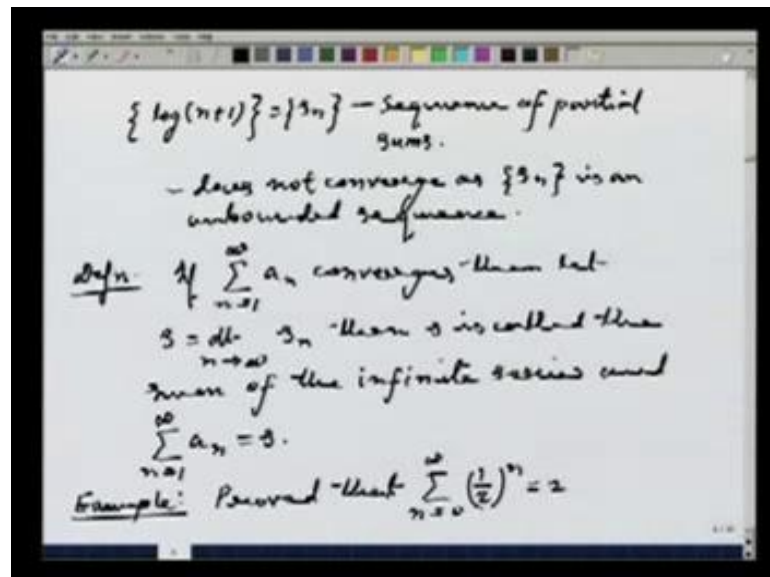 {log(n+1)} = {sn} - Sequence of partial
sums.
- does not converge as {sn} is an
unbounded sequence.
Defn. If ∑_{n=1}^{∞} an converges then let
s = lt_{n→∞} sn then s is called the
sum of the infinite series and
∑_{n=1}^{∞} an = s.
Example: Proved that ∑_{n=0}^{∞} (1/2)^n = 2